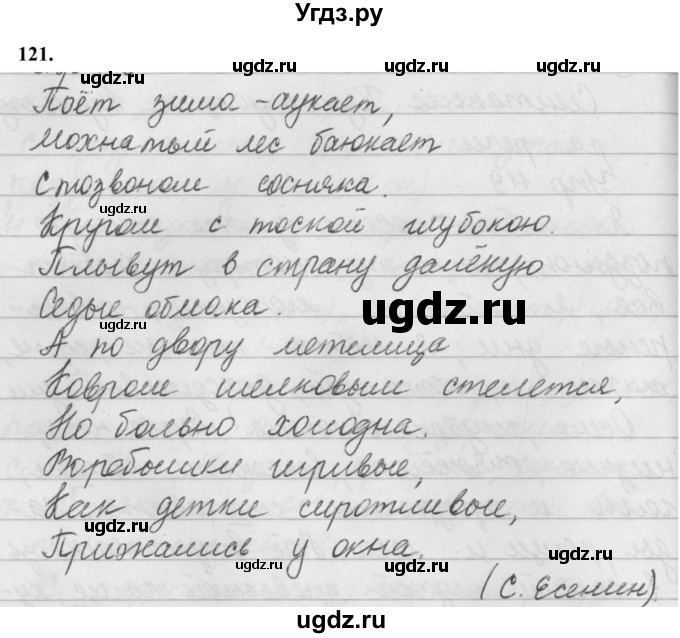 Угдз.ру
121.
Поёт зима - аукает,
Мохнатый лес баюкает
Стозвоном сосняка.
Кругом с тоской глубокою.
Плывут в страну далёкую
Седые облака.
А по двору метелица
Ковром шелковым стелется,
Но больно холодна.
Воробышки игривые,
Как детки сиротливые,
Прижались у окна.
(С. Есенин)
ugdz.ru
ugdz.ru
ugdz.ru
ugdz.ru
ugdz.ru
ugdz.ru
ugdz.ru
ugdz.ru
ugdz.ru
ugdz.ru
ugdz.ru
ugdz.ru
ugdz.ru
ugdz.ru